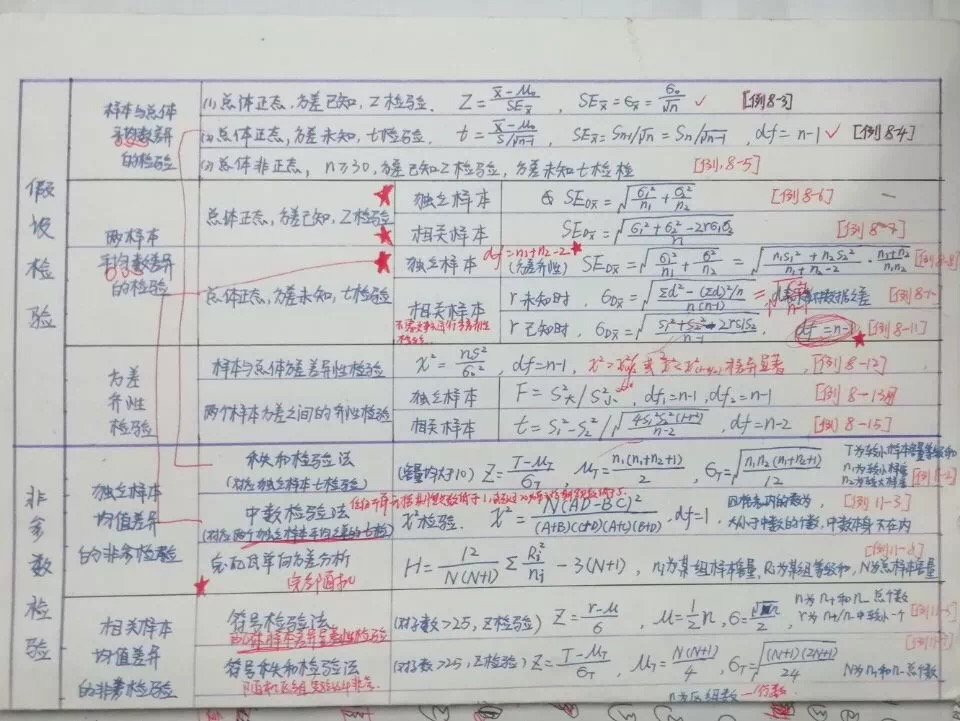 假设检验
样本与总体平均数差异的检验
(1) 总体正态,方差已知,Z检验. Z = (X̄-μ₀)/SEx̄ , SEx̄ = σx̄ = σ₀/√n ✓ [例8-3]
(2) 总体正态,方差未知,t检验. t = (X̄-μ₀)/(S/√(n-1)) , SEx̄ = Sn-1/√n = Sn/√(n-1) , df = n-1 ✓ [例8-4]
(3) 总体非正态, n≥30,方差已知Z检验,方差未知t检验 [例8-5]
两样本平均数差异的检验
总体正态,方差已知,Z检验
独立样本 SEDx̄ = √(σ₁²/n₁ + σ₂²/n₂) [例8-6]
相关样本 SEDx̄ = √((σ₁²+σ₂²-2rσ₁σ₂)/n) [例8-7]
总体正态,方差未知,t检验
独立样本 (方差齐性) df = n₁+n₂-2 SEDx̄ = = √((n₁S₁²+n₂S₂²)/(n₁+n₂-2) · (n₁+n₂)/(n₁n₂)) [例8-8]
相关样本
r未知时, σDx̄ = √((Σd²-(Σd)²/n)/(n(n-1)))
r已知时, σDx̄ = √((S₁²+S₂²-2rS₁S₂)/(n-1)) , df = n-1 [例8-11]
方差齐性检验
样本与总体方差差异性检验 χ² = nS²/σ₀² , df=n-1, 差异显著 [例8-12]
两个样本方差之间的齐性检验
独立样本 F = S²大/S²小 , df₁=n-1, df₂=n-1 [例8-13]
相关样本 t = S₁²-S₂²/√(4S₁²S₂²(1-r²)/(n-2)) , df=n-2 [例8-15]
非参数检验
独立样本均值差异的非参检验
秩和检验法
(对应独立样本t检验)
(容量均大于10) Z = (T-μT)/σT , μT = n₁(n₁+n₂+1)/2 , σT = √(n₁n₂(n₁+n₂+1)/12)
T为较小样本容量等级和
n₁为较小样本
n₂为较大样本
中数检验法
(对应两个独立样本平均数之差的t检验)
χ²检验. χ² = N(AD-BC)²/((A+B)(C+D)(A+C)(B+D)) , df=1,
四格表内的数为大小于中数的个数,中数本身不在内 [例11-3]
克-瓦氏单向方差分析
完全随机
H = 12/(N(N+1)) Σ Ri²/ni - 3(N+1) , ni为某组样本容量, Ri为某组等级和, N为总样本容量
相关样本均值差异的非参检验
符号检验法
(对子数>25, Z检验) Z = (r-μ)/σ , μ = ½n, σ = √n/2 , n为n+和n-总个数
r为n+/n-中较小一个
符号秩和检验法
(对子数>25, Z检验) Z = (T-μT)/σT , μT = N(N+1)/4 , σT = √(N(N+1)(2N+1)/24) N为n+和n-总个数
n为区组数 一行数